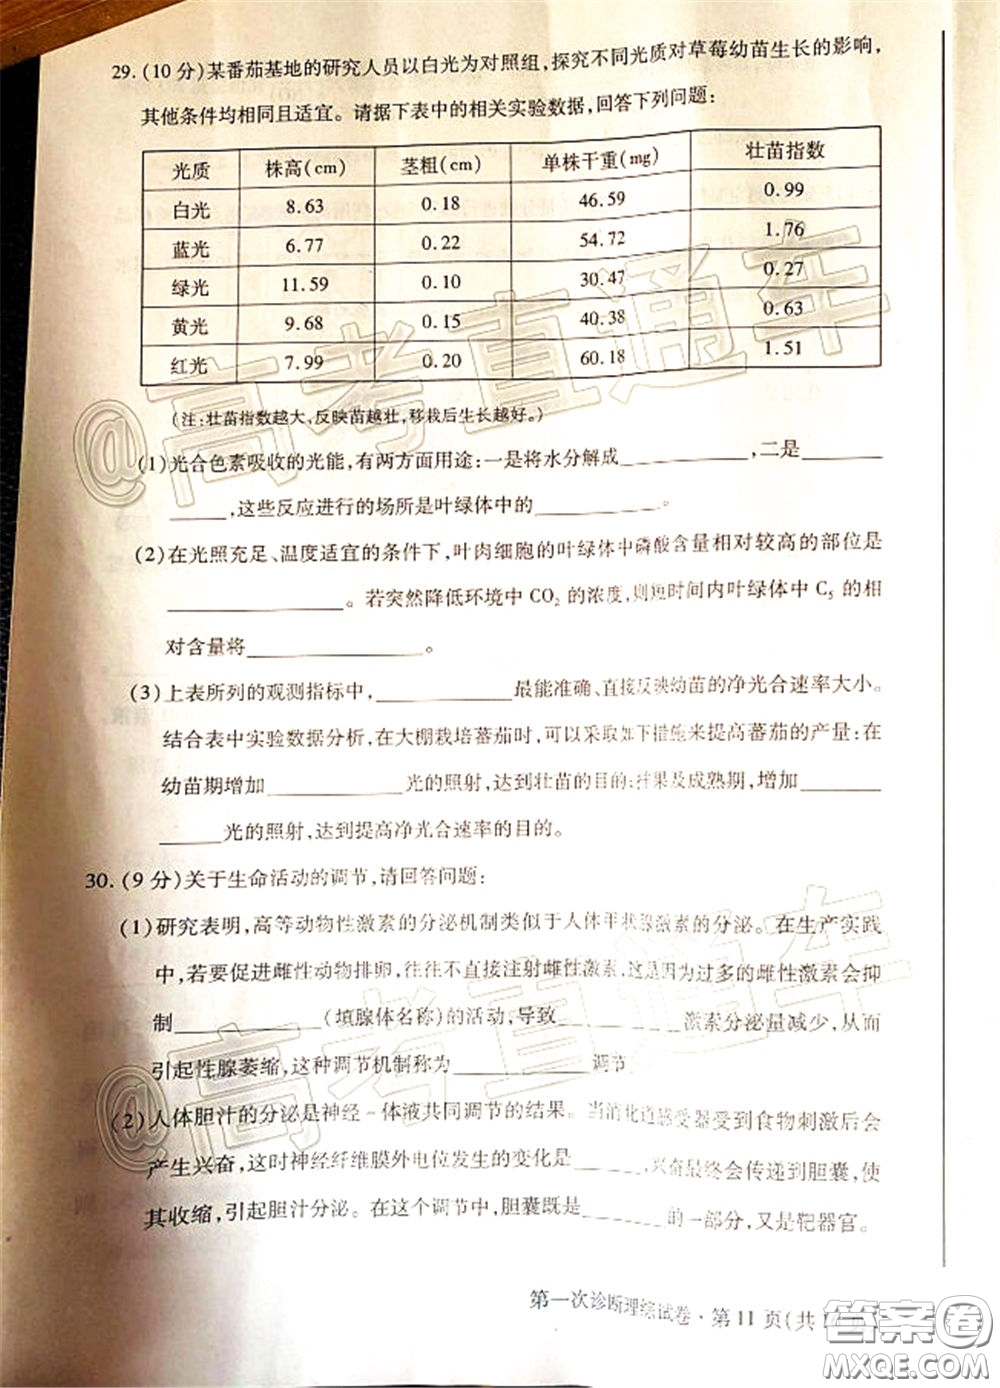 29. (10 分)某番茄基地的研究人员以白光为对照组,探究不同光质对草莓幼苗生长的影响,
其他条件均相同且适宜。请据下表中的相关实验数据,回答下列问题:
光质 株高(cm) 茎粗(cm) 单株干重(mg) 壮苗指数
白光 8.63 0.18 46.59 0.99
蓝光 6.77 0.22 54.72 1.76
绿光 11.59 0.10 30.47 0.27
黄光 9.68 0.15 40.38 0.63
红光 7.99 0.20 60.18 1.51
(注:壮苗指数越大,反映苗越壮,移栽后生长越好。)
(1)光合色素吸收的光能,有两方面用途:一是将水分解成__________,二是______
_____,这些反应进行的场所是叶绿体中的__________。
(2)在光照充足、温度适宜的条件下,叶肉细胞的叶绿体中磷酸含量相对较高的部位是
__________。若突然降低环境中 CO₂ 的浓度,则短时间内叶绿体中 C₅ 的相
对含量将__________。
(3)上表所列的观测指标中,__________最能准确、直接反映幼苗的净光合速率大小。
结合表中实验数据分析,在大棚栽培蕃茄时,可以采取如下措施来提高蕃茄的产量:在
幼苗期增加__________光的照射,达到壮苗的目的;挂果及成熟期,增加______
_____光的照射,达到提高净光合速率的目的。
30. (9 分)关于生命活动的调节,请回答问题:
(1)研究表明,高等动物性激素的分泌机制类似于人体甲状腺激素的分泌。在生产实践
中,若要促进雌性动物排卵,往往不直接注射雌性激素,这是因为过多的雌性激素会抑
制__________(填腺体名称)的活动,导致__________激素分泌量减少,从而
引起性腺萎缩,这种调节机制称为__________调节
(2)人体胆汁的分泌是神经-体液共同调节的结果。当消化道感受器受到食物刺激后会
产生兴奋,这时神经纤维膜外电位发生的变化是_____,兴奋最终会传递到胆囊,使
其收缩,引起胆汁分泌。在这个调节中,胆囊既是______的一部分,又是靶器官。
第一次诊断理综试卷·第 11 页(共
@高考直通车
@高考直通车
答案卷
MXQE.COM